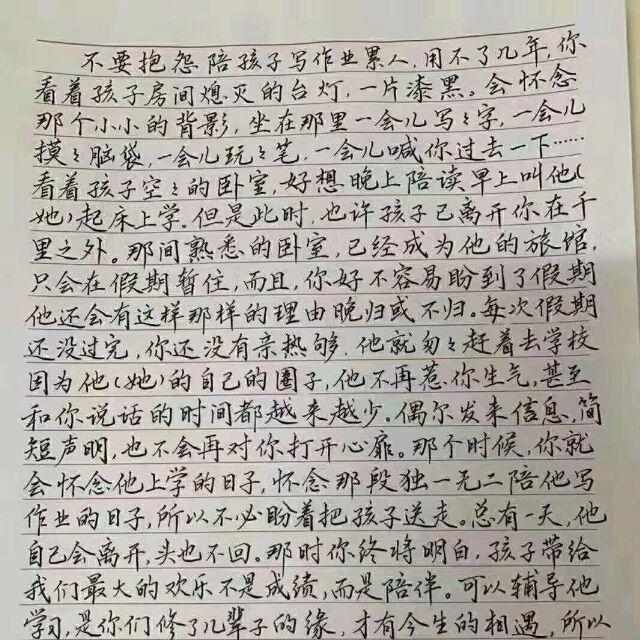 不要抱怨陪孩子写作业累人，用不了几年，你
看着孩子房间熄灭的台灯，一片漆黑。会怀念
那个小小的背影，坐在那里一会儿写々字，一会儿
摸々脑袋，一会儿玩々笔，一会儿喊你过去一下……
看着孩子空々的卧室，好想晚上陪读早上叫他(
她)起床上学。但是此时，也许孩子已离开你在千
里之外。那间熟悉的卧室，已经成为他的旅馆，
只会在假期暂住，而且，你好不容易盼到了假期
他还会有这样那样的理由晚归或不归。每次假期
还没过完，你还没有亲热够，他就匆々赶着去学校
因为他(她)的自己的圈子，他不再惹你生气，甚至
和你说话的时间都越来越少。偶尔发来信息，简
短声明，也不会再对你打开心扉。那个时候，你就
会怀念他上学的日子，怀念那段独一无二陪他写
作业的日子，所以不必盼着把孩子送走。总有一天，他
自己会离开，头也不回。那时你终将明白，孩子带给
我们最大的欢乐不是成绩，而是陪伴。可以辅导他
学习，是你们修了几辈子的缘，才有今生的相遇，所以